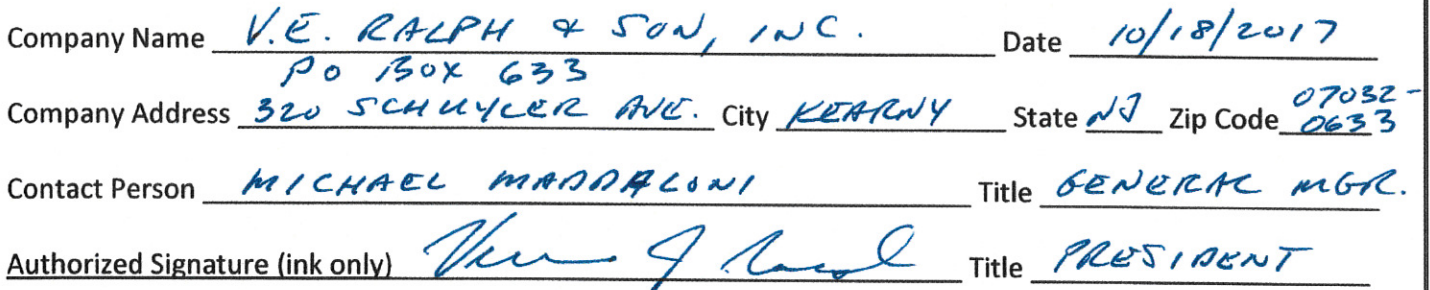 Company Name V.E. RALPH & SON, INC. Date 10/18/2017
PO BOX 633
Company Address 320 SCHUYLER AVE. City KEARNY State NJ Zip Code 07032-0633
Contact Person MICHAEL MADDALONI Title GENERAL MGR.
Authorized Signature (ink only) Title PRESIDENT